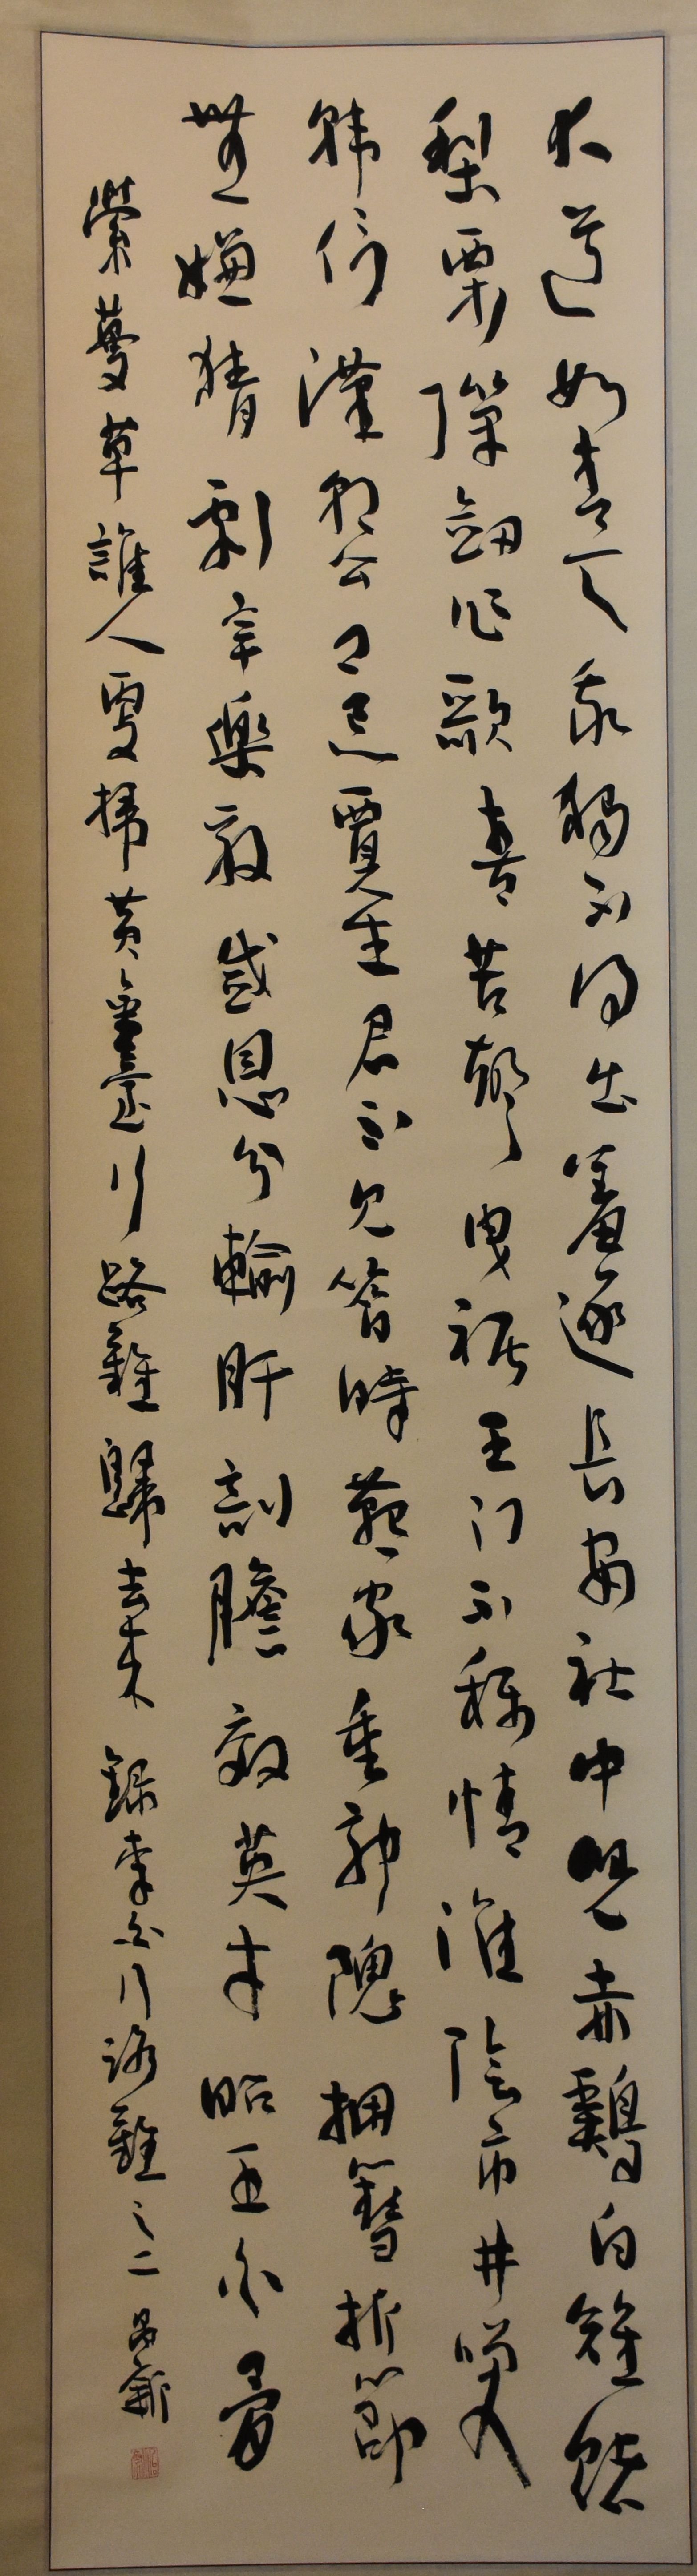 大道如青天我獨不得出羞逐長安社中兒赤鷄白雉賭
梨栗彈劒作歌奏苦聲曳裾王門不稱情淮陰市井咲
韓信漢朝公卿忌賈生君不見昔時燕家重郭隗擁篲折節
無嫌猜劇辛樂毅感恩分輸肝剖膽效英才昭王白骨
縈蔓草誰人更掃黃金臺行路難歸去來 錄李白行路難之二